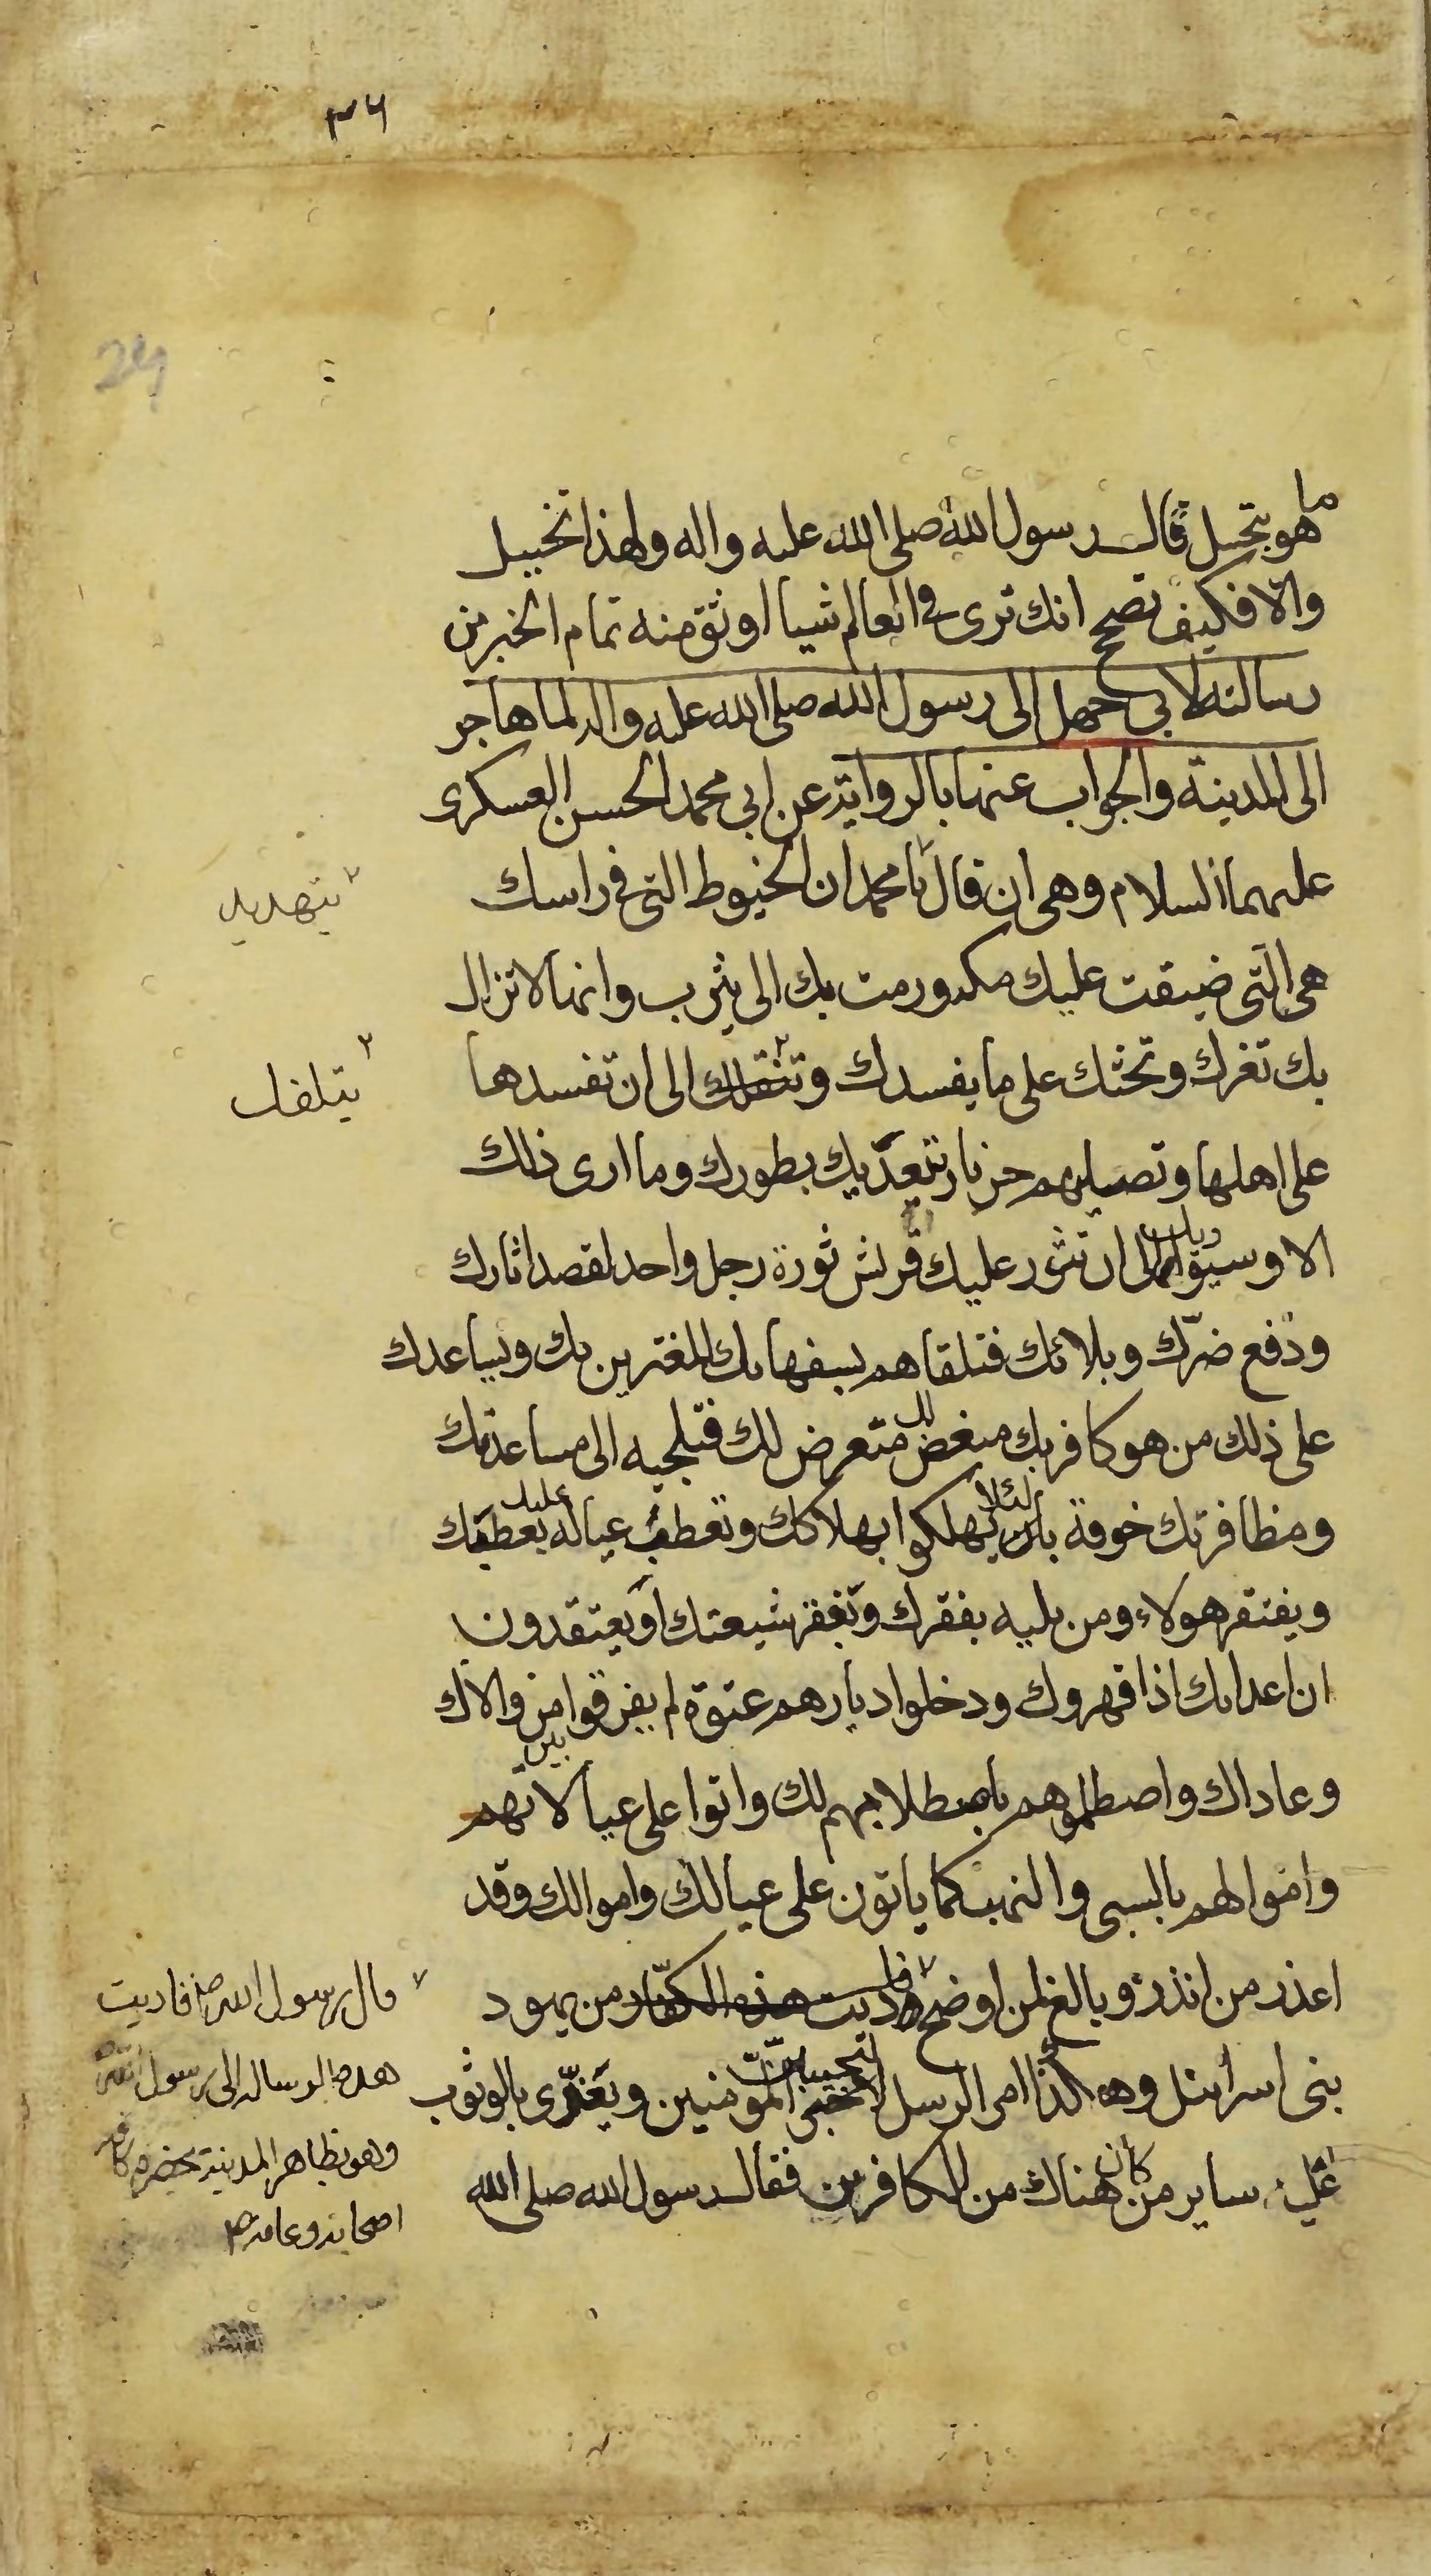 ٣٦
29
ما هو بتخييل قال رسول الله صلى الله عليه واله ولهذا تخييل
والا فكيف تصحح انك ترى في العالم شيا اوثق منه تمام الخبر من
رسالته لابي جهل الى رسول الله صلى الله عليه واله لما هاجر
الى المدينة والجواب عنها بالرواية عن ابي محمد الحسن العسكرى
عليهما السلام وهى ان قال يا محمد ان الخيوط التى في راسك
هى التى ضيقت عليك مكه ورمت بك الى يثرب وانها لا تزال
بك تغرك وتحثك على ما يفسدك الى ان تفسدها
على اهلها وتصليهم حر نار تعديك بطورك وما ارى ذلك
الا وسيؤل الى ان تثور عليك قريش ثورة رجل واحد لقصد اثارك
ودفع ضرك وبلائك فتلقاهم بسفهائك المغترين بك ويساعدك
على ذلك من هو كافر بك مبغض لك متعرض لك فتلجيه الى مساعدتك
ومظافرتك خوفه لئلا يهلكوا بهلاكك وتعطب عياله بعطبك
ويفتقر هولاء ومن يليه بفقرك وبفقر شيعتك او يعتقدون
ان اعدائك اذا قهروك ودخلوا ديارهم عنوة لم يفرقوا بين من والاك
وعاداك واصطلموهم باصطلامهم لك واتوا على عيالاتهم
واموالهم بالسبى والنهب كما ياتون على عيالك واموالك وقد
اعذر من انذر وبالغ من اوضح فاديت هذه الكفار من يهود
بنى اسرائيل وهكذا امر الرسل المؤمنين ويغرى بالوثوب
عليه ساير من كان هناك من الكافرين فقال رسول الله صلى الله
بتهديد
يتلفك
قال رسول الله ص فاديت
هذه الرساله الى رسول الله
وهو بظاهر المدينة بحضرة كافه
اصحابه وعامه